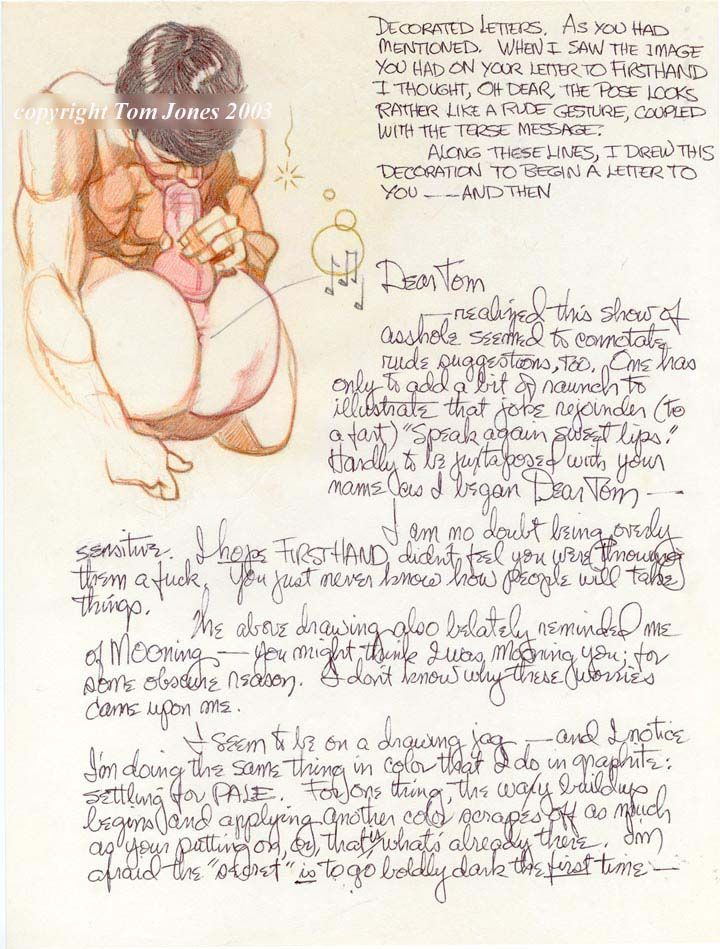 DECORATED LETTERS. AS YOU HAD
MENTIONED. WHEN I SAW THE IMAGE
YOU HAD ON YOUR LETTER TO FIRSTHAND
I THOUGHT, OH DEAR, THE POSE LOOKS
RATHER LIKE A RUDE GESTURE, COUPLED
WITH THE TERSE MESSAGE.
ALONG THESE LINES, I DREW THIS
DECORATION TO BEGIN A LETTER TO
YOU — AND THEN
copyright Tom Jones 2003
Dear Tom
— realized this show of
asshole seemed to connotate
rude suggestions, too. One has
only to add a bit of raunch to
illustrate that joke rejoinder (to
a fart) "Speak again sweet lips."
Hardly to be juxtaposed with your
name as I began Dear Tom —
I am no doubt being overly
sensitive. I hope FIRSTHAND didn't feel you were throwing
them a fuck. You just never know how people will take
things.
The above drawing also belately reminded me
of Mooning — you might think I was mooning you; for
some obscure reason. I don't know why these worries
came upon me.
I seem to be on a drawing jag — and I notice
I'm doing the same thing in color that I do in graphite:
settling for PALE. For one thing, the waxy buildup
begins and applying another color scrapes off as much
as your putting on, or, that what's already there. I'm
afraid the "secret" is to go boldly dark the first time —